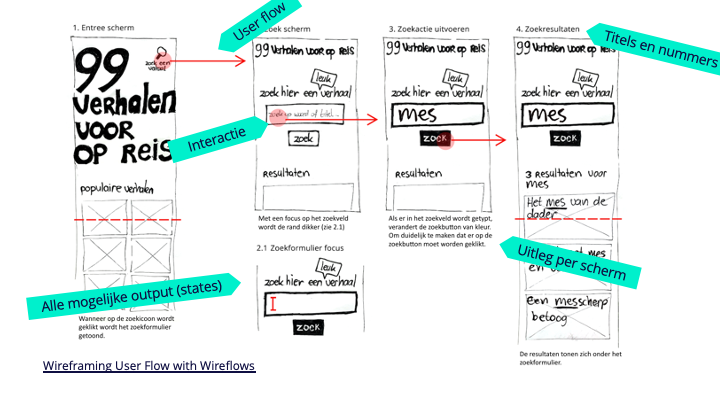 1. Entree scherm
99
verhalen
voor
op reis
zoek een
populaire verhalen
Wanneer op de zoekicoon wordt
geklikt wordt het zoekformulier
getoond.
User flow
zoek scherm
99 verhalen voor op reis
leuk
zoek hier een verhaal
zoek
Resultaten
Met een focus op het zoekveld
wordt de rand dikker (zie 2.1)
Interactie
2.1 Zoekformulier focus
leuk
zoek hier een verhaal
zoek
3. Zoekactie uitvoeren
99 verhalen voor op reis
leuk
zoek hier een verhaal
mes
zoek
Resultaten
Als er in het zoekveld wordt getypt,
verandert de zoekbutton van kleur.
Om duidelijk te maken dat er op de
zoekbutton moet worden geklikt.
4. Zoekresultaten
Titels en nummers
99 verhalen voor op reis
leuk
zoek hier een verhaal
mes
zoek
3 resultaten voor
mes
Het mes van de
dader
mes
en
Uitleg per scherm
Een messcherp
betoog
De resultaten tonen zich onder het
zoekformulier.
Alle mogelijke output (states)
Wireframing User Flow with Wireflows